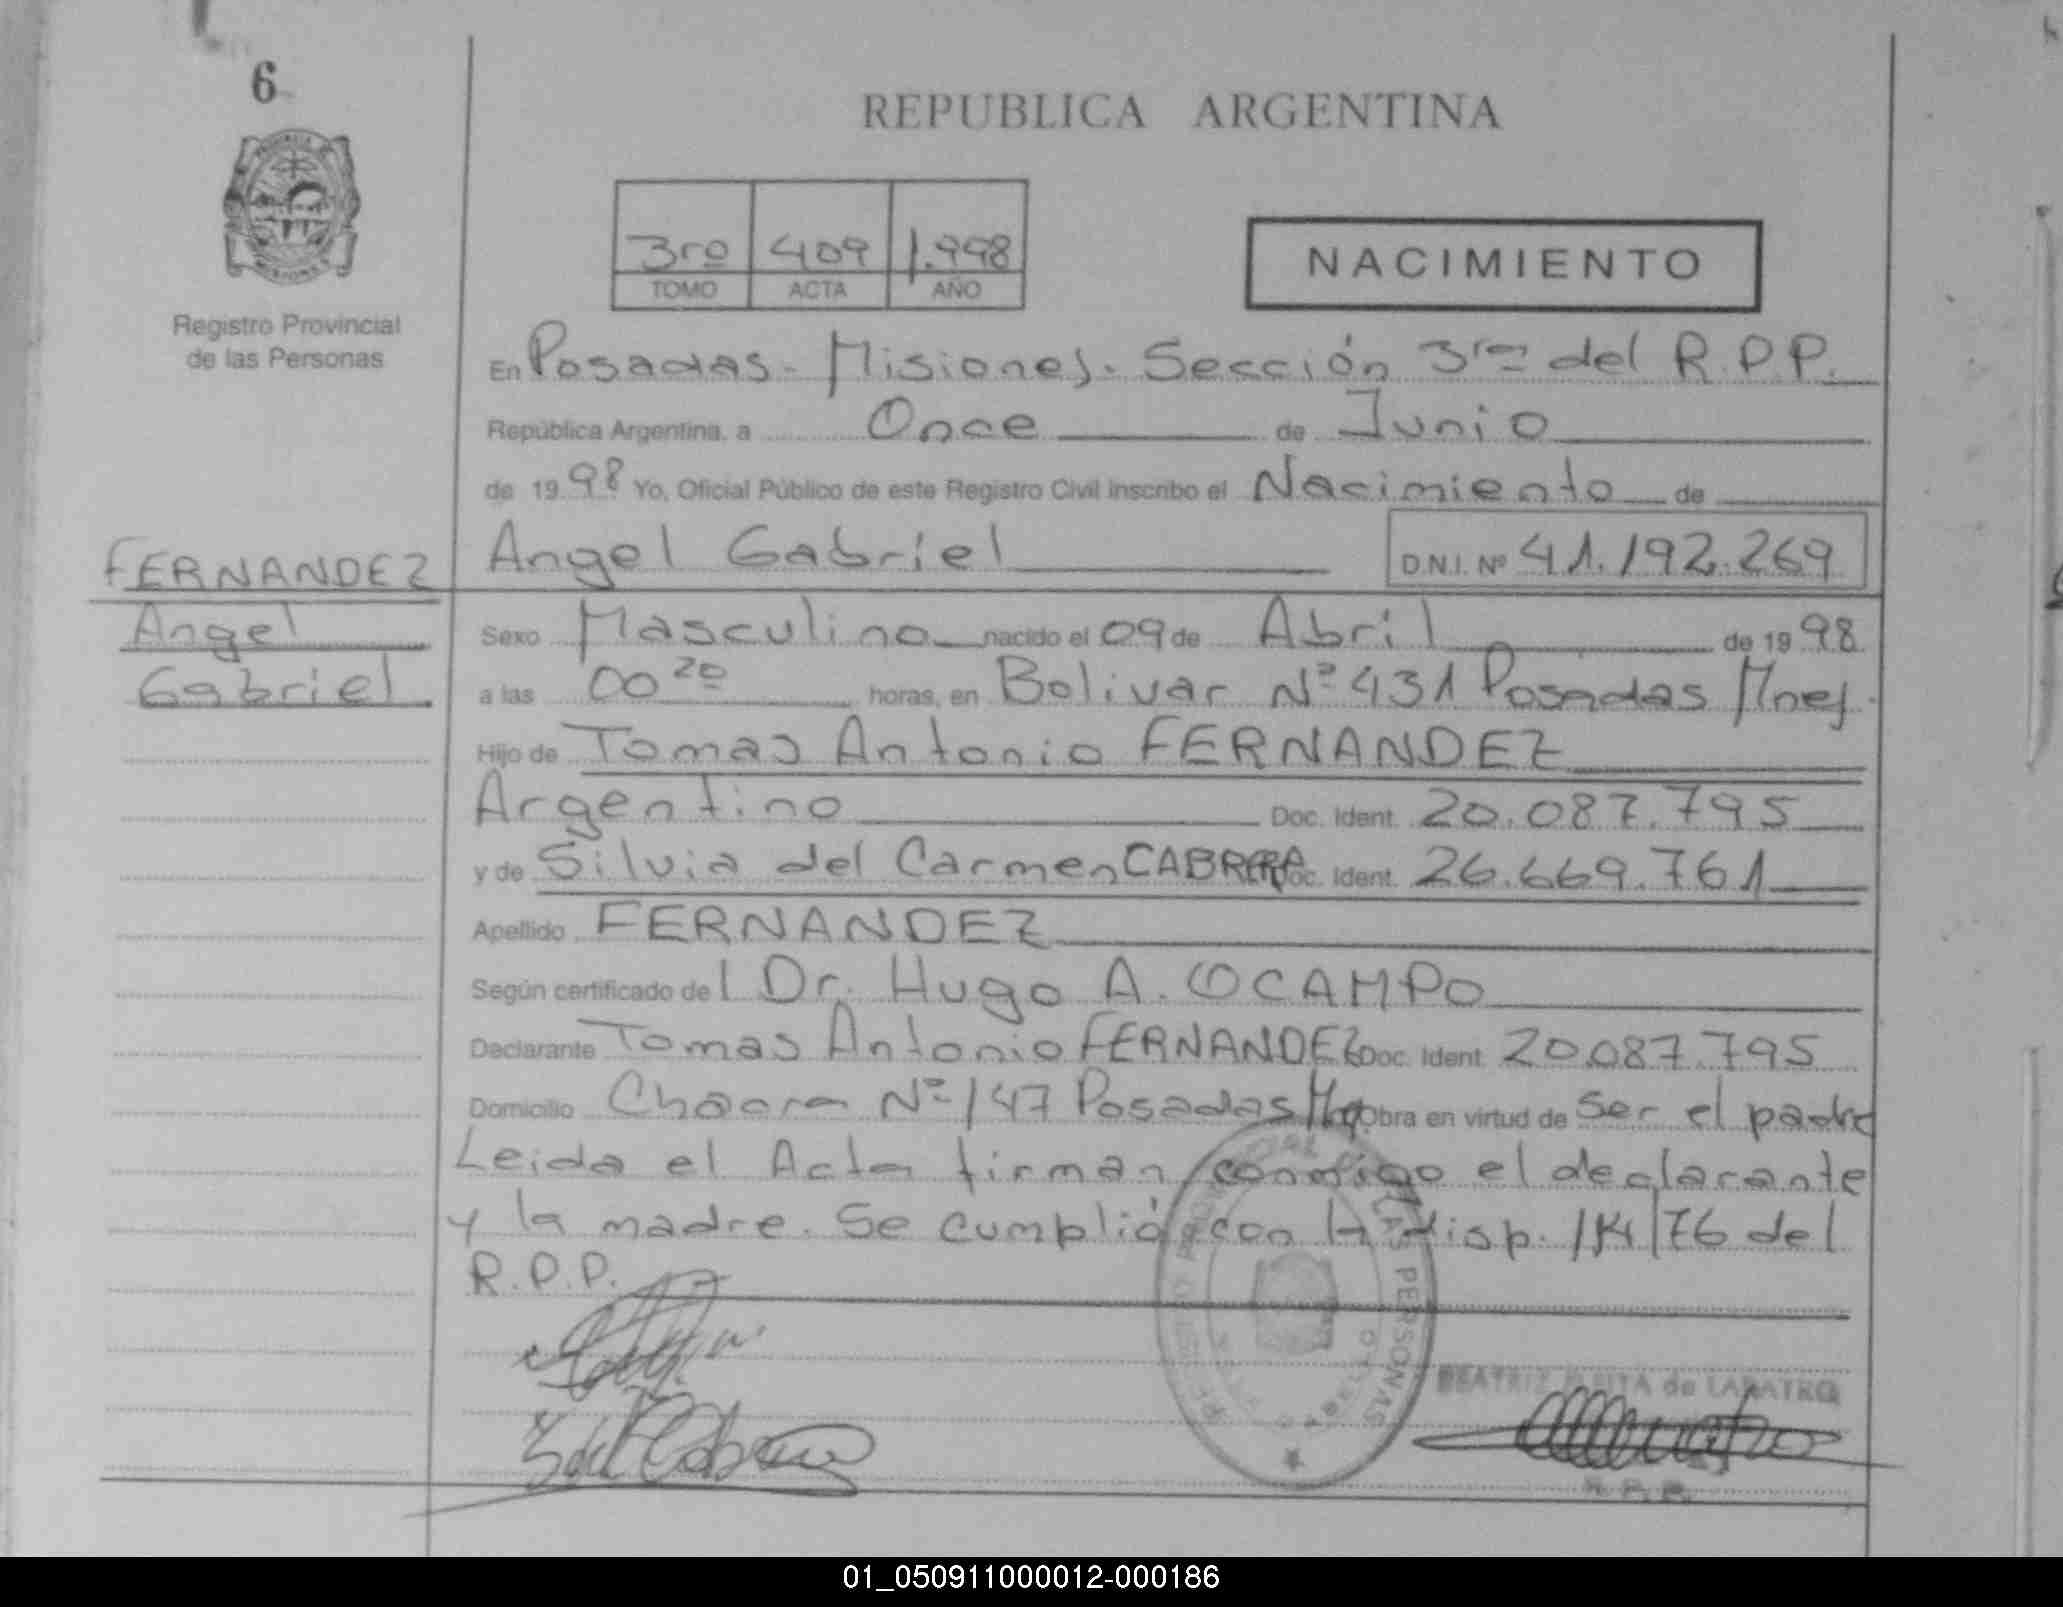 6
REPUBLICA ARGENTINA
3ro 409 1.998
TOMO ACTA AÑO
NACIMIENTO
Registro Provincial
de las Personas
En Posadas - Misiones. Sección 3ra del R.P.P.
República Argentina, a Once de Junio
de 1998 Yo, Oficial Público de este Registro Civil inscribo el Nacimiento de
FERNANDEZ Angel Gabriel D.N.I. Nº 41.192.269
Angel Sexo Masculino nacido el 09 de Abril de 1998
Gabriel a las 00 20 horas, en Bolivar Nº 431 Posadas Mnes.
Hijo de Tomas Antonio FERNANDEZ
Argentino Doc. Ident. 20.087.795
y de Silvia del Carmen CABRERA Doc. Ident. 26.669.761
Apellido FERNANDEZ
Según certificado del Dr. Hugo A. OCAMPO
Declarante Tomas Antonio FERNANDEZ Doc. Ident. 20.087.795
Domicilio Chacra Nº 147 Posadas obra en virtud de Ser el padre
Leida el Acta firman conmigo el declarante
y la madre. Se cumplió con la disp. /76 del
R.P.P.
REGISTRO PROVINCIAL DE LAS PERSONAS
BEATRIZ de LABATRO
R.P.P.
01_050911000012-000186